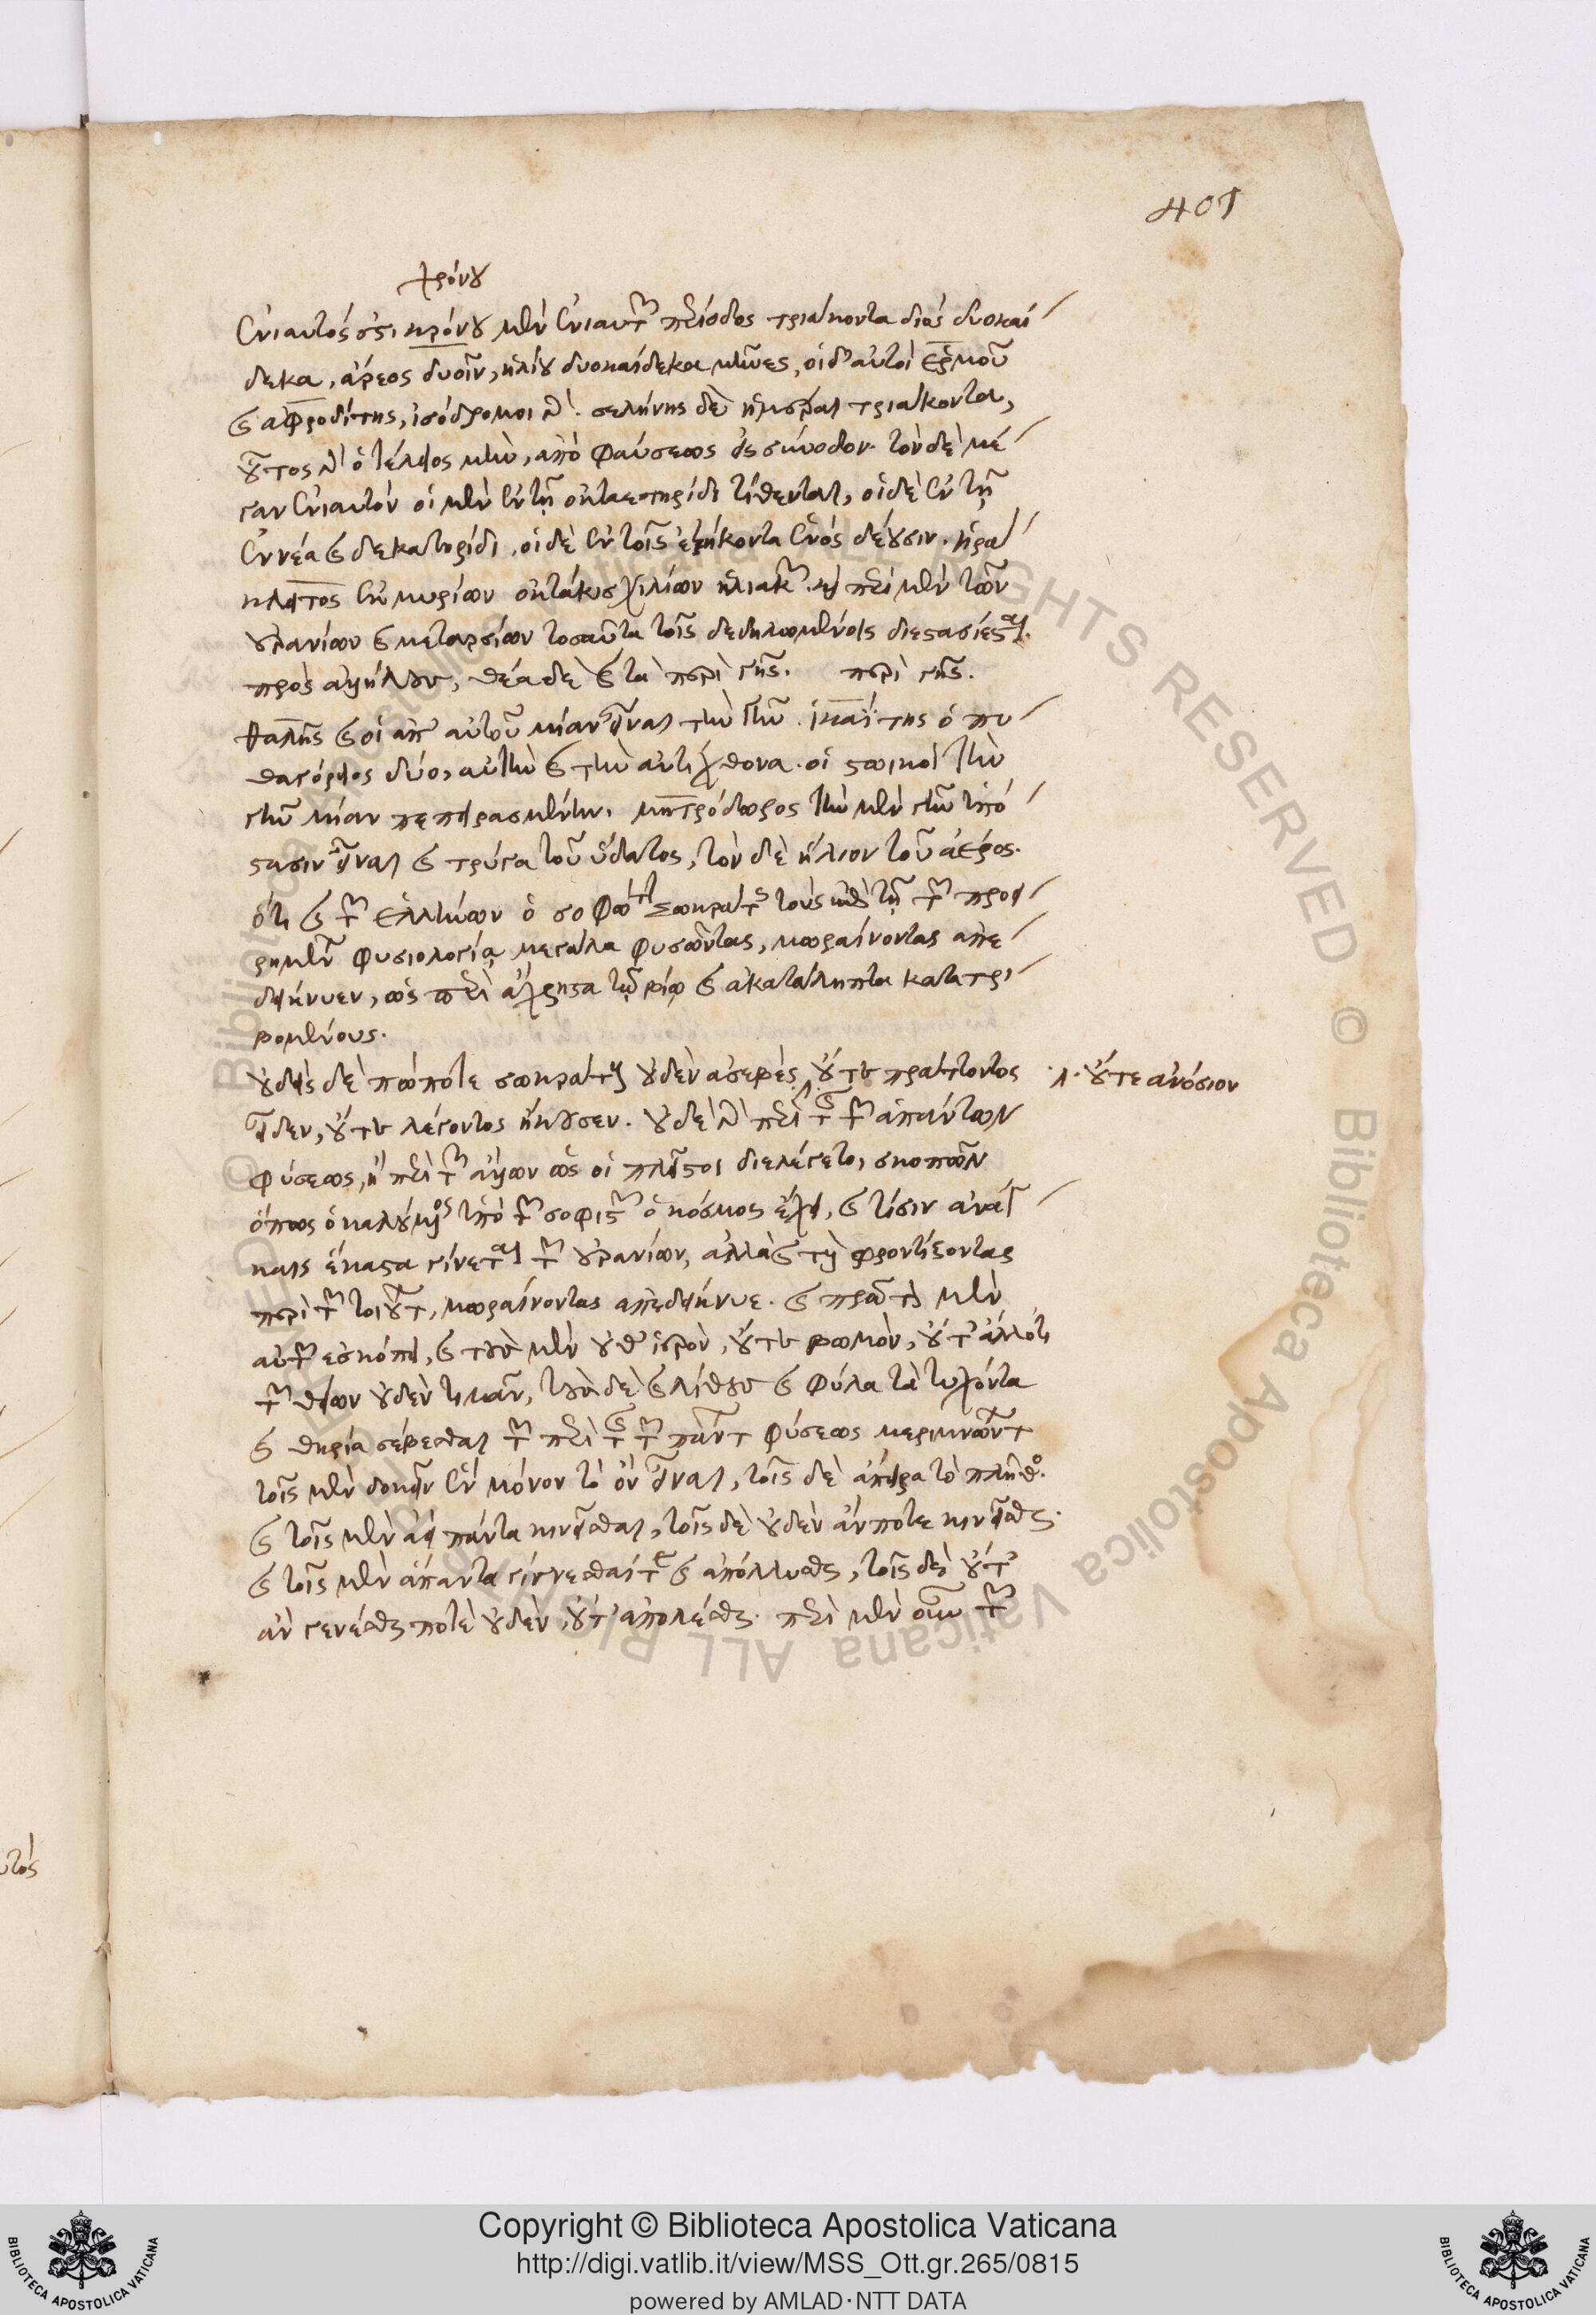 401
χρόνου
ἐνιαυτός ἐστι κρόνου μὲν ἐνιαυτῶν περίοδος τριάκοντα διὸς δυοκαί
δεκα, ἄρεος δυοῖν, ἡλίου δυοκαίδεκα μῆνες, οἱ δ' αὐτοὶ ἑρμοῦ
καὶ ἀφροδίτης, ἰσόδρομοι γάρ. σελήνης δὲ ἡμέραι τριάκοντα,
οὗτος γὰρ ὁ τέλειος μὴν, ἀπὸ φαύσεως εἰς σύνοδον. τὸν δὲ μέ
γαν ἐνιαυτὸν οἱ μὲν ἐν τῇ ὀκταετηρίδι τίθενται, οἱ δὲ ἐν τῇ
ἐννεακαιδεκατηρίδι, οἱ δὲ ἐν τοῖς ἑξήκοντα ἑνὸς δέουσιν. ἡρά
κλειτος ἐκ μυρίων ὀκτακισχιλίων ἡλιακῶν. καὶ περὶ μὲν τῶν
οὐρανίων καὶ μεταρσίων τοσαῦτα τοῖς δεδηλωμένοις διεστασίασται
πρὸς ἀλλήλους, θέα δὲ καὶ τὰ περὶ γῆς. περὶ γῆς.
θαλῆς καὶ οἱ ἀπ' αὐτοῦ μίαν εἶναι τὴν γῆν. ἱκέτης ὁ πυ
θαγόρειος δύο, αὐτὴν καὶ τὴν ἀντίχθονα. οἱ στωικοὶ τὴν
γῆν μίαν πεπερασμένην. μητρόδωρος τὴν μὲν γῆν ὑπό
στασιν εἶναι καὶ τρύγα τοῦ ὕδατος, τὸν δὲ ἥλιον τοῦ ἀέρος.
ὅτι καὶ τῶν ἑλλήνων ὁ σοφώτατος σωκράτης τοὺς ἐπὶ τῇ τῶν προει
ρημένων φυσιολογίᾳ μεγάλα φυσῶντας, μωραίνοντας ἀπε
δείκνυεν, ὡς περὶ ἄχρηστα τῷ βίῳ καὶ ἀκατάληπτα κατατρι
βομένους.
οὐδεὶς δὲ πώποτε σωκράτους οὐδὲν ἀσεβὲς οὔτε πράττοντος
εἶδεν, οὔτε λέγοντος ἤκουσεν. οὐδὲ γὰρ περὶ τῆς τῶν ἁπάντων
·λ· οὔτε ἀνόσιον
φύσεως, ἢ περὶ τῶν ἄλλων ὡς οἱ πλεῖστοι διελέγετο, σκοπῶν
ὅπως ὁ καλούμενος ὑπὸ τῶν σοφιστῶν ὁ κόσμος ἔχει, καὶ τίσιν ἀνάγ
καις ἕκαστα γίνεται τῶν οὐρανίων, ἀλλὰ καὶ τοὺς φροντίζοντας
περὶ τῶν τοιούτων, μωραίνοντας ἀπεδείκνυε. καὶ πρῶτον μὲν
αὐτῶν ἐσκόπει, καὶ τοὺς μὲν οὔθ' ἱερὸν, οὔτε βωμὸν, οὔτ' ἄλλό τι
τῶν θείων οὐδὲν τιμᾶν, τοὺς δὲ καὶ λίθους καὶ ξύλα τὰ τυχόντα
καὶ θηρία σέβεσθαι τῶν περὶ τῆς τῶν πάντων φύσεως μεριμνώντων
τοῖς μὲν δοκεῖν ἓν μόνον τὸ ὂν εἶναι, τοῖς δὲ ἄπειρα τὸ πλῆθος.
καὶ τοῖς μὲν ἀεὶ πάντα κινεῖσθαι, τοῖς δὲ οὐδὲν ἄν ποτε κινεῖσθαι.
καὶ τοῖς μὲν ἅπαντα γίγνεσθαί τε καὶ ἀπόλλυσθαι, τοῖς δὲ οὔτ'
ἂν γενέσθαι ποτὲ οὐδὲν, οὔτ' ἀπολέσθαι. περὶ μὲν οὖν τῶν
Copyright © Biblioteca Apostolica Vaticana
http://digi.vatlib.it/view/MSS_Ott.gr.265/0815
powered by AMLAD·NTT DATA